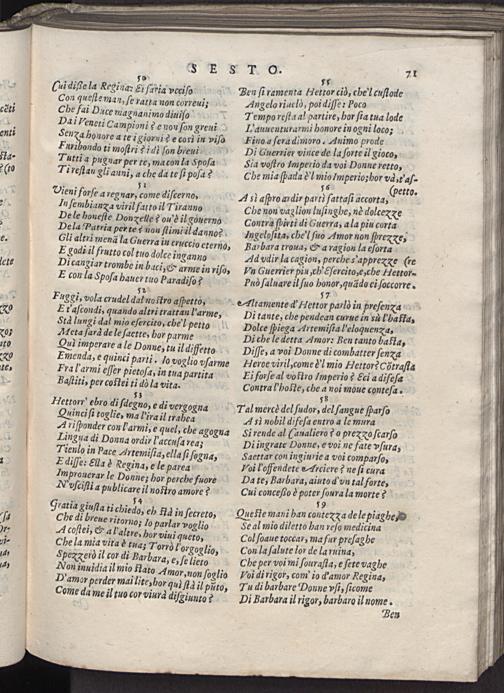 SESTO.
71
50
Cui disse la Regina: Et saria vcciso
Con queste man, se ratta non correui;
Che fai Duce magnanimo diuiso
Da i Veneti Campioni? e non son greui
Senza honore a te i giorni? e così in viso
Furibondo ti mostri? idi son breui
Tutti a pugnar per te, ma con la Sposa
Ti restan gli anni, a che da te si posa?
51
Vieni forse a regnar, come discerno,
In sembianza viril fatto il Tiranno
De le honeste Donzelle? ou'è il gouerno
De la Patria per te? non stimi il danno?
Gli altri menâ la Guerra in cruccio eterno,
E godi il frutto col tuo dolce inganno
Di cangiar trombe in baci, & arme in riso,
E con la Sposa hauer tuo Paradiso?
52
Fuggi, vola crudel dal nostro aspetto,
E t'ascondi, quando altri trattan l'arme,
Stà lungi dal mio esercito, che'l petto
Meta sarà de le saette, hor parme
Quì imperare a le Donne, tu il diffetto
Emenda, e quinci parti. Io voglio vsarme
Fra l'armi esser pietosa, in tua partita
Bastiti, per costei ti dò la vita.
53
Hettorr' ebro di sdegno, e di vergogna
Quinci si toglie, ma l'ira il trahea
A risponder con l'armi, e quel, che agogna
Lingua di Donna ordir l'accusa rea;
Tienlo in Pace Artemisia, ella si sogna,
E disse: Ella è Regina, e le parea
Improuerar le Donne; hor perche fuore
N'vscisti a publicare il nostro amore?
54
Gratia giusta ti chiedo, ch stà in secreto,
Che di breue ritorno; Io parlar voglio
A costei, & a l'altre, hor viui queto,
Che la mia vita è tua; Torrò l'orgoglio,
Spezzerò il cor di Barbara, e, se lieto
Non inuidia il mio stato Amor, non soglio
D'amor perder mai lite, hor quì stà il pũto,
Come da me il tuo cor viurà disgiunto?
55
Ben si ramenta Hettor ciò, che'l custode
Angelo riuelò, poi disse: Poco
Tempo resta al partire, hor sia tua lode
L'auuenturarmi honore in ogni loco;
Fino a sera dimoro. Animo prode
Di Guerrier vince de la sorte il gioco,
Sia vostro Imperio da voi Donne retto,
Che mia spada è'l mio Imperio; hor và, t'as-
(petto.
56
A sì aspro ardir partì sattasi accorta,
Che non vaglion lusinghe, nè dolcezze
Contra spirti di Guerra, a la piu corta
Angelosità, che'l suo Amor non sprezze;
Barbara troua, & a ragion la esorta
Ad vdir la cagion, perche s'apprezze (re
Vn Guerrier piu, ch'Esercito, e, che Hettor-
Può saluare il suo honor, quãdo ei soccorre.
57
Altamente d'Hettor parlò in presenza
Di tante, che pendean curue in sù l'hasta,
Dolce spiega Artemisia l'eloquenza,
Di che le detta Amor: Ben tanto basta,
Disse, a voi Donne di combatter senza
Heroe viril, come è'l mio Hettor? Cõtrasta
Ei forse al vostro Imperio? Ei a difesa
Contra l'hoste, che a noi moue contesa.
58
Tal mercè del sudor, del sangue sparso
A sì nobil difesa entro a le mura
Si rende al Caualiero? o prezzo scarso
Di ingrate Donne, e voi ne fate vsura,
Saettar con ingiurie a voi comparso,
Voi l'offendete Arciere? ne si cura
Da te, Barbara, aiuto d'vn tal forte,
Cui concesso è poter soura la morte?
59
Queste mani han contezza de le piaghe,
Se al mio diletto han reso medicina
Col soaue toccar, ma fur presaghe
Con la salute lor de la ruina,
Che per voi mi sourasta, e sete vaghe
Voi di rigor, com' io d'amor Regina,
Tu di barbare Donne vsi, sicome
Di Barbara il rigor, barbaro il nome.
Ben